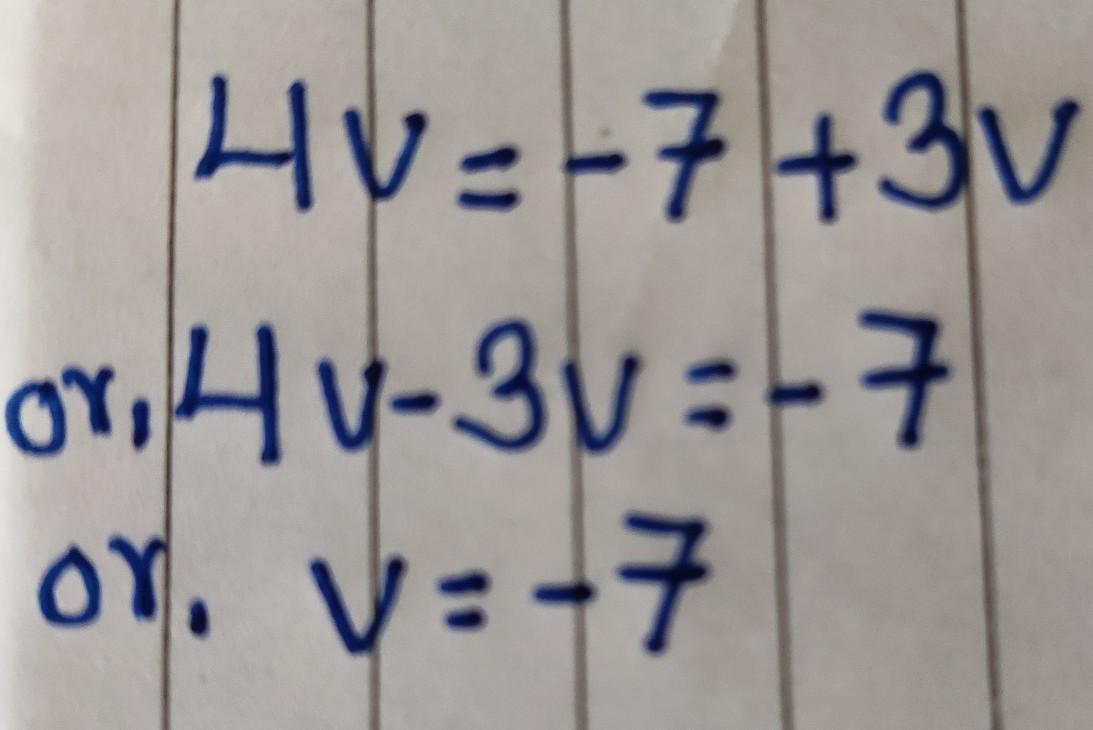 4v = -7 + 3v
or, 4v - 3v = -7
or, v = -7